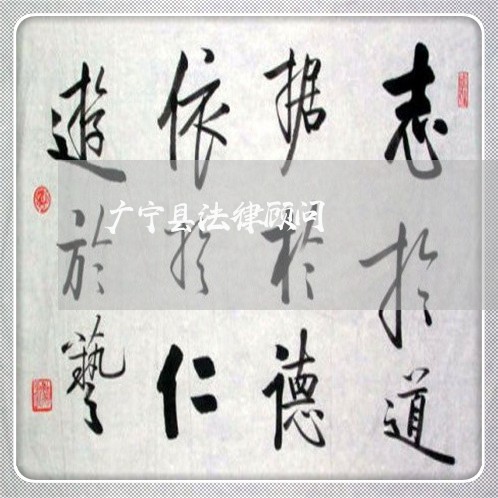 志於道
据於德
依於仁
遊於藝
广宁县法律顾问